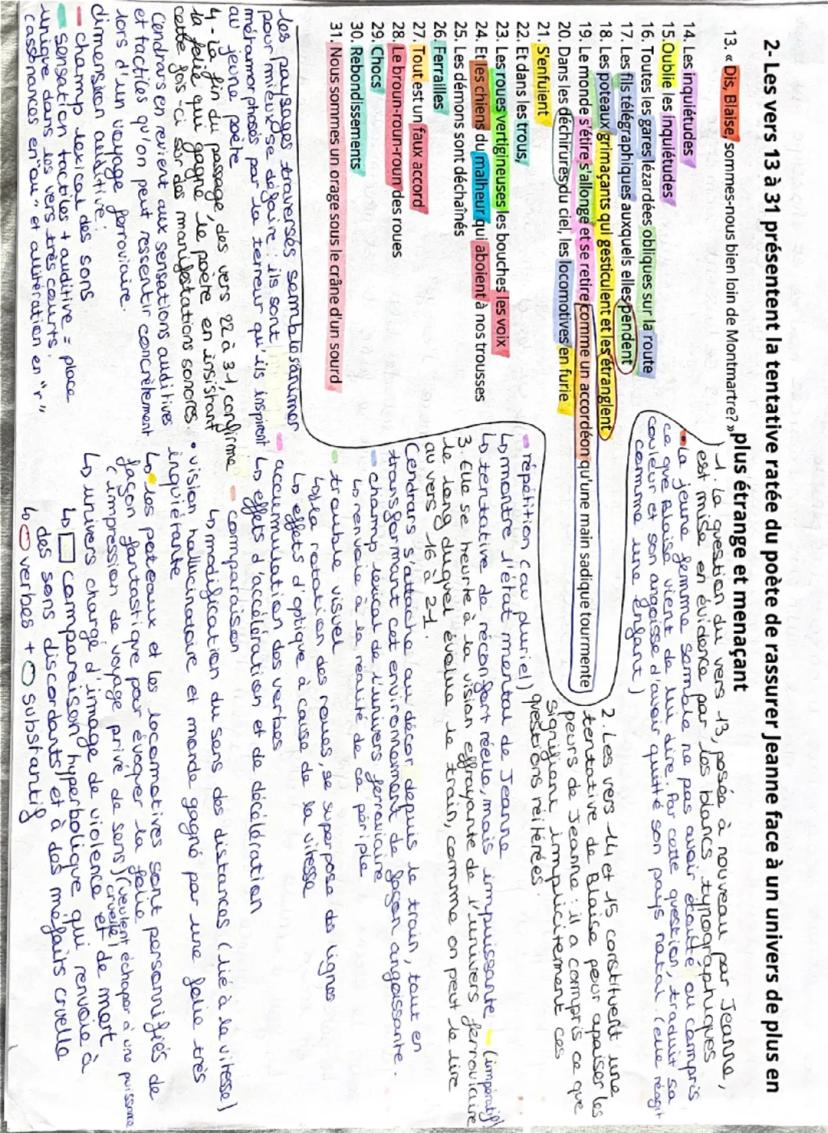 2- Les vers 13 à 31 présentent la tentative ratée du poète de rassurer Jeanne face à un univers de plus en
plus étrange et menaçant
13. « Dis, Blaise, sommes-nous bien loin de Montmartre? »
14. Les inquiétudes
15.Oublie les inquiétudes
16. Toutes les gares lézardées obliques sur la route
17. Les fils télégraphiques auxquels elles pendent
18. Les poteaux grimaçants qui gesticulent et les étranglent
19. Le monde s'étire s'allonge et se retire comme un accordéon qu'une main sadique tourmente
20. Dans les déchirures du ciel, les locomotives en furie
21. S'enfuient
22. Et dans les trous,
23. Les roues vertigineuses les bouches les voix
24. Et les chiens du malheur qui aboient à nos trousses
25. Les démons sont déchaînés
26. Ferrailles
27. Tout est un faux accord
28. Le broun-roun-roun des roues
29. Chocs
30. Rebondissements
31. Nous sommes un orage sous le crâne d'un sourd
1. la question du vers 13, posée à nouveau par Jeanne,
est mise en évidence par les blancs typographiques
La jeune femme semble ne pas avoir écouté ou compris
ce que Blaise vient de lui dire. Par cette question, traduit sa
couleur et son angoisse d'avoir quitté son pays natal. (elle réagit
comme une enfant)
2. Les vers 14 et 15 constituent une
tentative de Blaise pour apaiser les
peurs de Jeanne : il a compris ce que
signifiaient implicitement ces
questions réitérées.
répétition (au pluriel)
↳ montre l'état mental de Jeanne
↳ tentative de réconfort réelle, mais impuissante (impératif)
3. Elle se heurte à la vision effrayante de l'univers ferroviaire
le long duquel évolue le train, comme on peut le lire
au vers 16 à 21.
Cendrars s'attache au décor depuis le train, tout en
transformant cet environnement de façon angoissante.
champ lexical de l'univers ferroviaire
↳ renvoie à la réalité de ce périple
trouble visuel
↳ la rotation des roues, se superpose des lignes
↳ effets d'optique à cause de la vitesse
accumulation des verbes
↳ effets d'accélération et de décélération
comparaison
↳ modification du sens des distances (lié à la vitesse)
• vision hallucinatoire et monde gagné par une folie très
inquiétante
↳ les poteaux et les locomotives sont personnifiés de
façon fantastique pour évoquer la folie
(impression de voyage privé de sens) (veulent échaper à une puissance
cruelle)
↳ univers chargé d'image de violence et de mort
↳ □ comparaison hyperbolique qui renvoie à
des sons discordants et à des mefaits cruelle
↳ ○ verbes + ○ substantif
les paysages traversés semble s'animer
pour mieux se défaire : ils sont
métamorphosés par la terreur qu'ils inspirent
au jeune poète
4 - La fin du passage des vers 22 à 31 confirme
la folie qui gagne le poète en insistant
cette fois-ci sur des manifestations sonores.
Cendrars en revient aux sensations auditives
et tactiles qu'on peut ressentir concrètement
lors d'un voyage ferroviaire.
dimension auditive :
- champ lexical des sons
- sensation tactiles + auditive = place
unique dans les vers très courts.
(assonances en "ou" et allitération en "r"